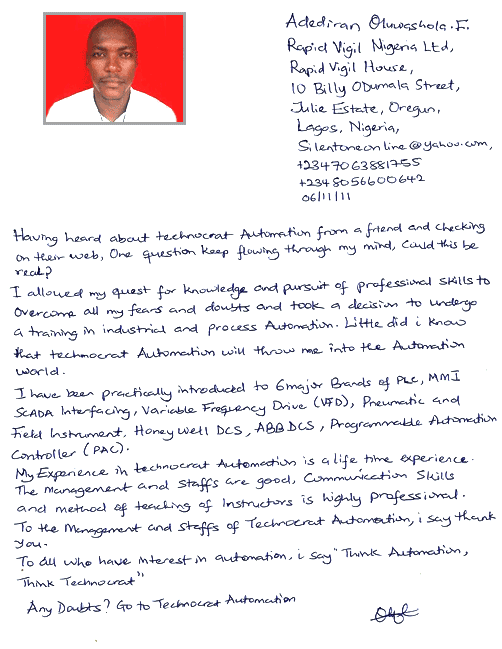 Adediran Oluwashola .E.
Rapid Vigil Nigeria Ltd,
Rapid Vigil House,
10 Billy Odumala Street,
Julie Estate, Oregun,
Lagos, Nigeria,
Silentoneonline@yahoo.com,
+2347063881755
+2348056600642
06/11/11
Having heard about technocrat Automation from a friend and checking
on their web, One question keep flowing through my mind, Could this be
real?
I allowed my quest for knowledge and pursuit of professional skills to
Overcome all my fears and doubts and took a decision to undergo
a training in industrial and process Automation. Little did i know
that technocrat Automation will throw me into the Automation
world.
I have been practically introduced to 6major Brands of PLC, MMI
SCADA Interfacing, Variable Frequency Drive (VFD), Pneumatic and
Field Instrument, Honey Well DCS, ABB DCS, Programmable Automation
Controller (PAC).
My Experience in technocrat Automation is a life time experience.
The Management and Staffs are good, Communication Skills
and method of teaching of Instructors is highly professional.
To the Management and Staffs of Technocrat Automation, i say thank
you.
To all who have interest in automation, i say "Think Automation,
Think Technocrat"
Any Doubts? Go to Technocrat Automation